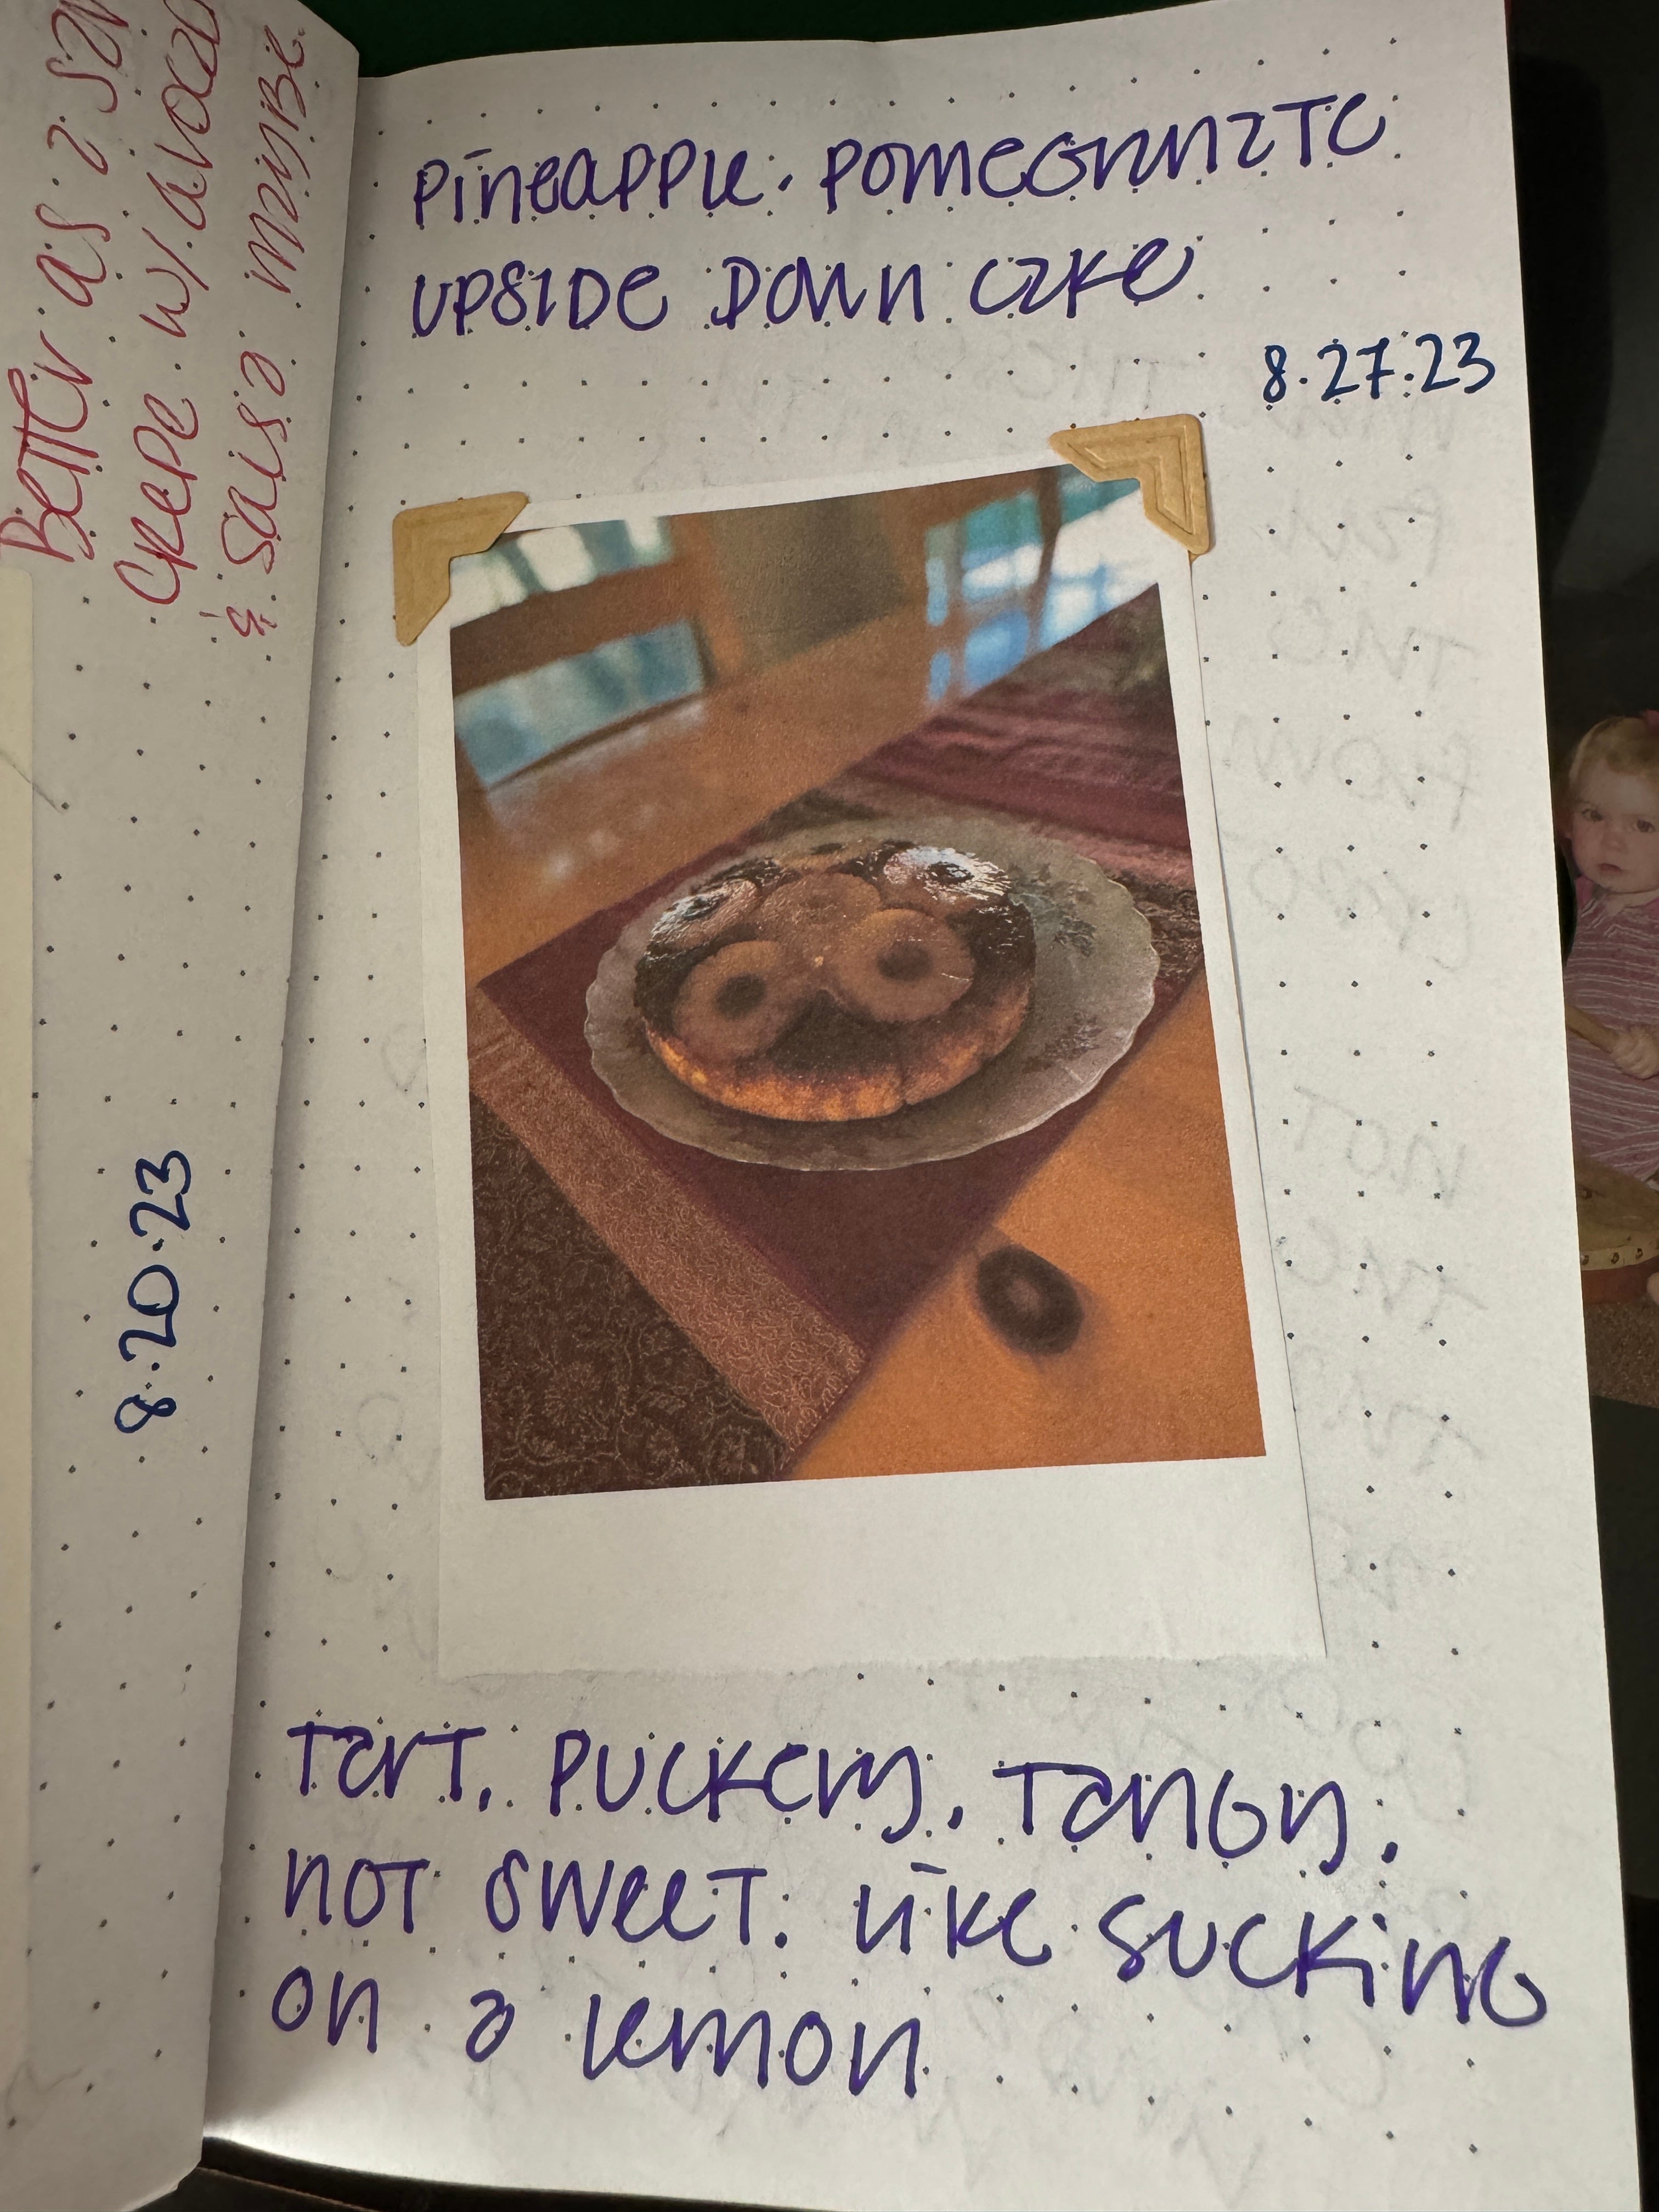 Better as a
crepe w/
& salsa maybe.
8.20.23
Pineapple. Pomegranate
upside Down cake
8.27.23
Tart. Puckery. Tangy.
not sweet. like sucking
on a lemon